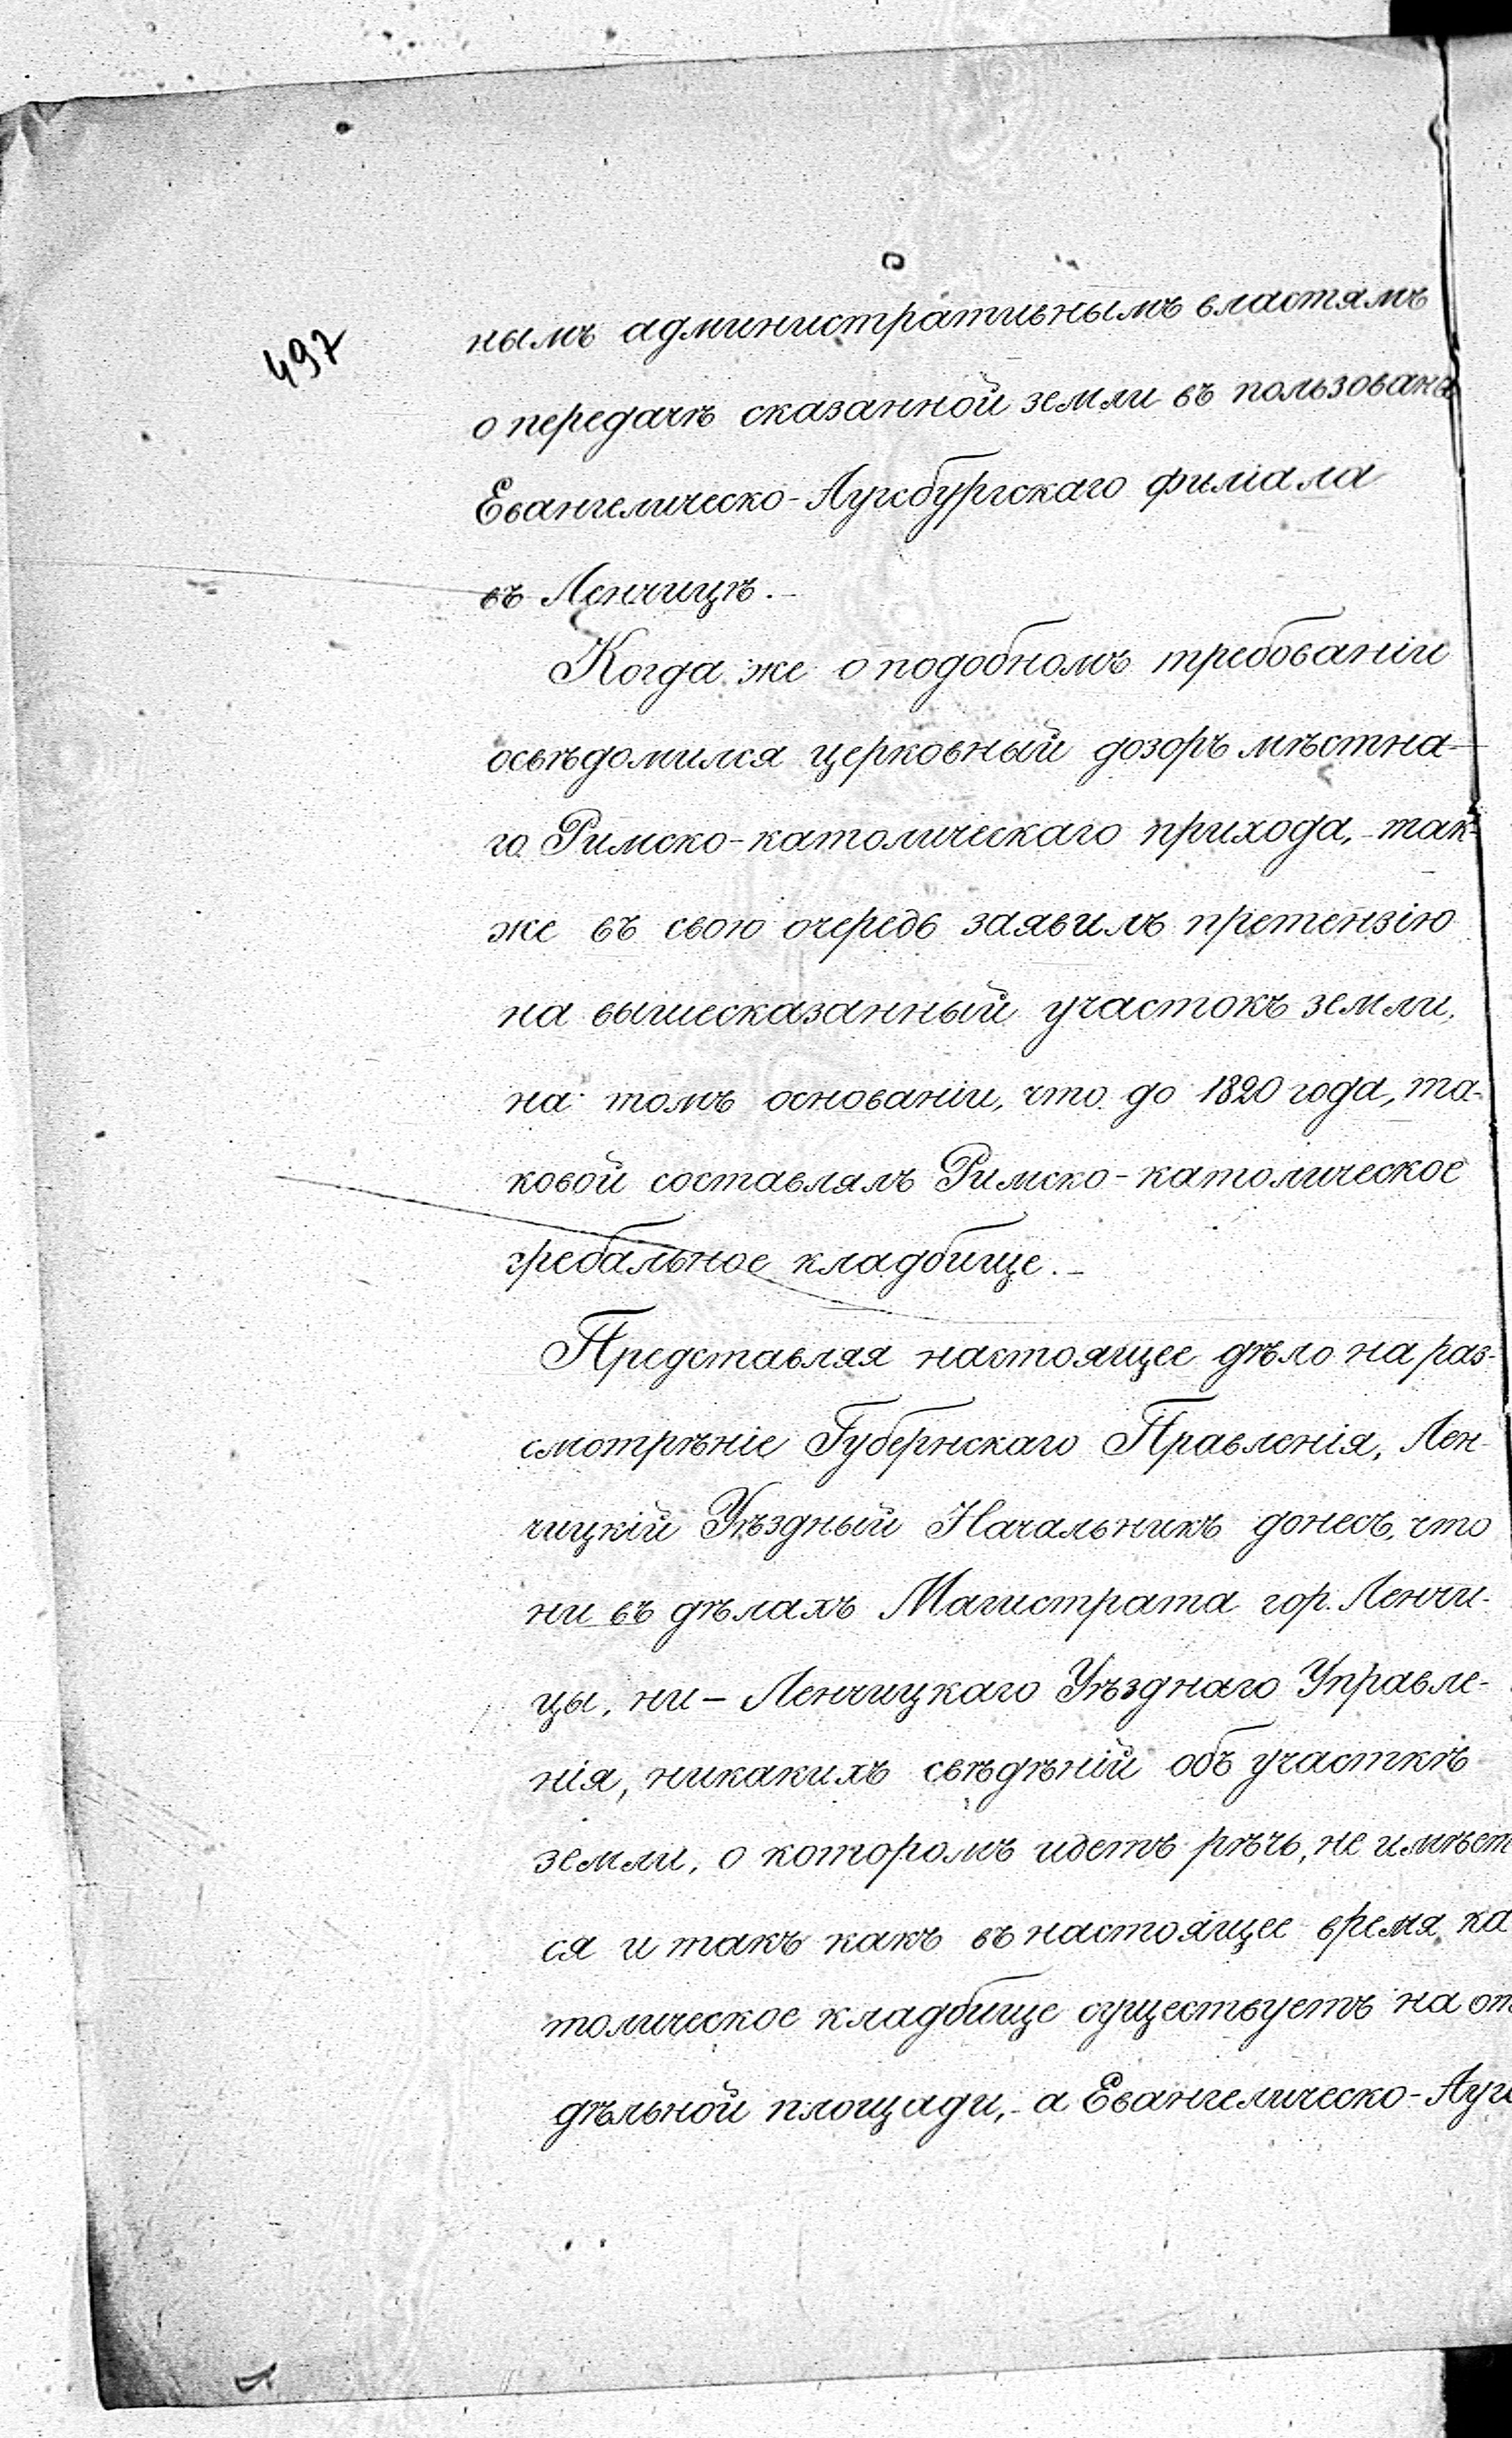 497
нымъ административнымъ властямъ
о передачѣ сказанной земли въ пользован
Евангелическо-Аугсбургскаго филіала
въ Ленчицѣ.-
Когда же о подобномъ требованіи
освѣдомился церковный дозоръ мѣстна-
го Римско-католическаго прихода, так-
же въ свою очередь заявилъ претензію
на вышесказанный участокъ земли,
на томъ основаніи, что до 1820 года, та-
ковой составлялъ Римско-католическое
гребальное кладбище.-
Представляя настоящее дѣло на раз-
смотрѣніе Губернскаго Правленія, Лен-
чицкій Уѣздный Начальникъ донесъ, что
ни въ дѣлахъ Магистрата гор. Ленчи-
цы, ни - Ленчицкаго Уѣзднаго Управле-
нія, никакихъ свѣдѣній объ участкѣ
земли, о которомъ идетъ рѣчь, не имѣет
ся и такъ какъ въ настоящее время ка
толическое кладбище существуетъ на от
дѣльной площади, а Евангелическо-Ауг